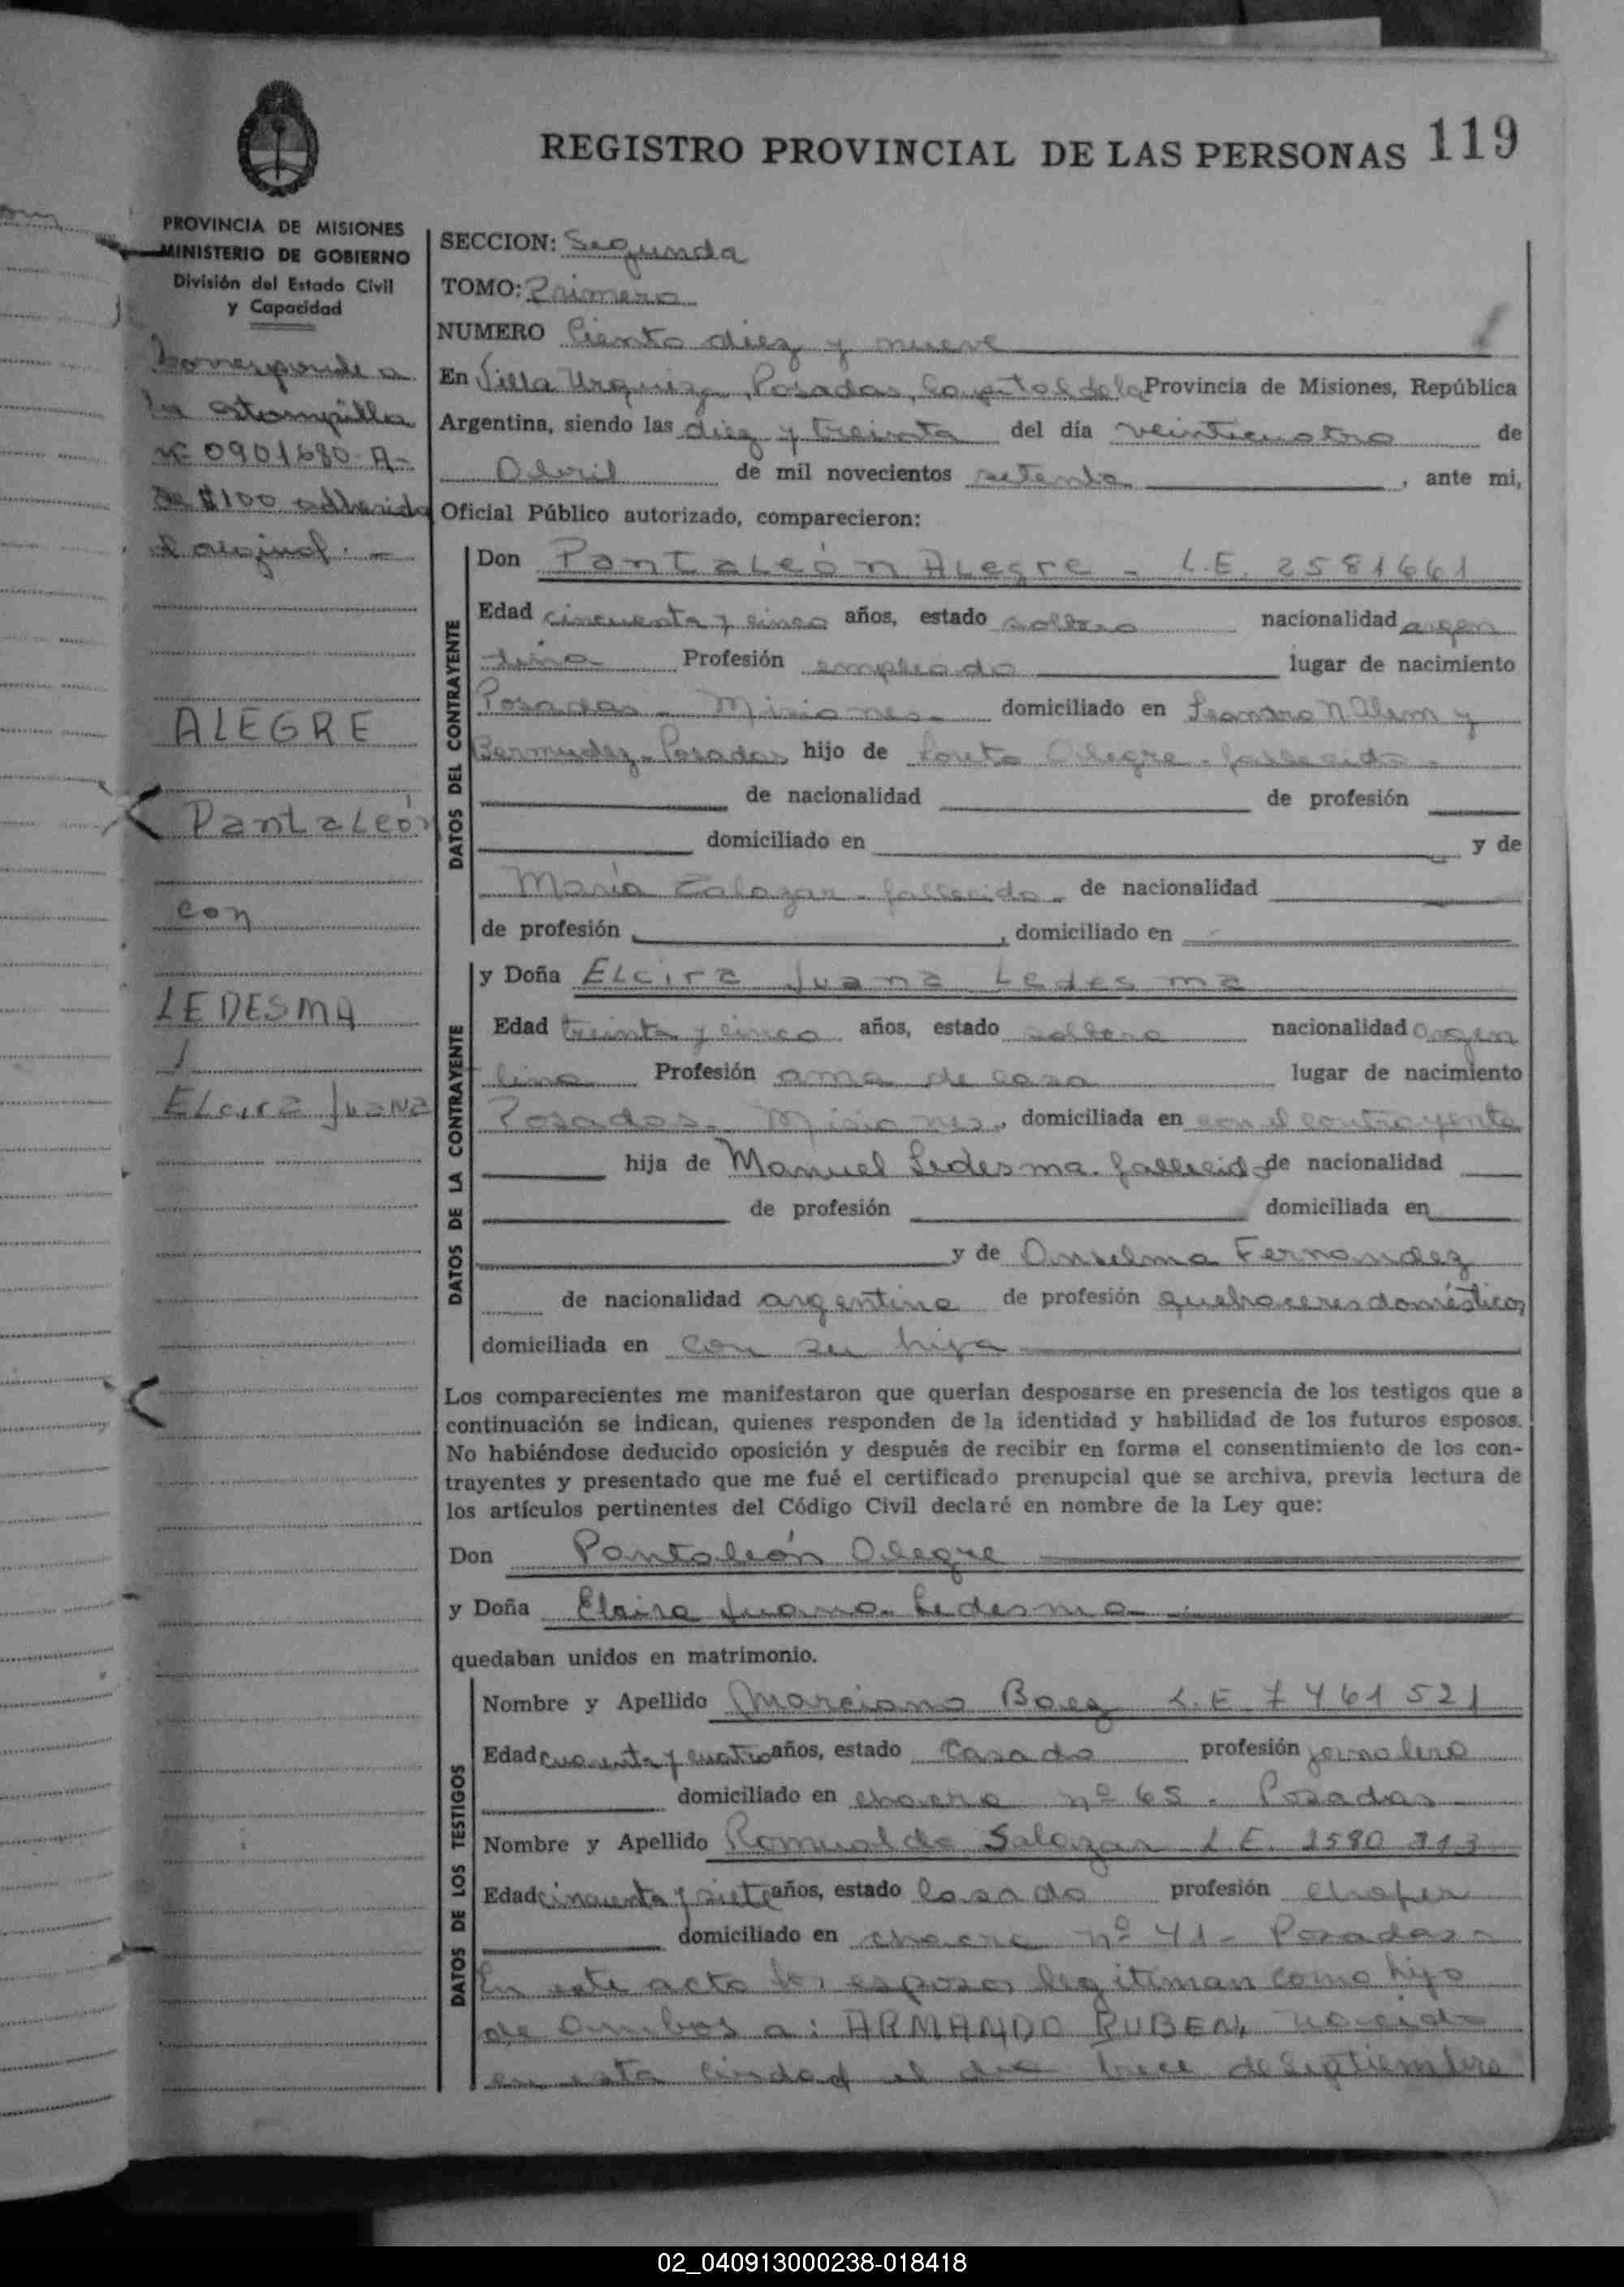 REGISTRO PROVINCIAL DE LAS PERSONAS 119
PROVINCIA DE MISIONES
MINISTERIO DE GOBIERNO
División del Estado Civil
y Capacidad
Corresponde a
la estampilla
Nº 0901680-A-
de $100 adherida
al original. -
ALEGRE
Pantaleón
con
LEDESMA
Elcira Juana
SECCION: Segunda
TOMO: Primero
NUMERO Ciento diez y nueve
En Villa Urquiza, Posadas, Capital de la Provincia de Misiones, República
Argentina, siendo las diez y treinta del día veinticuatro de
Abril de mil novecientos setenta , ante mi,
Oficial Público autorizado, comparecieron:
DATOS DEL CONTRAYENTE
Don Pantaleón Alegre - L.E. 2581661
Edad cincuenta y cinco años, estado soltero nacionalidad argen
tina Profesión empleado lugar de nacimiento
Posadas - Misiones - domiciliado en Leandro N Alem y
Bermudez - Posadas hijo de Loreto Alegre - fallecido -
de nacionalidad de profesión
domiciliado en y de
María Zalazar - fallecida - de nacionalidad
de profesión , domiciliado en
DATOS DE LA CONTRAYENTE
y Doña Elcira Juana Ledesma
Edad treinta y cinco años, estado soltera nacionalidad argen
tina Profesión ama de casa lugar de nacimiento
Posadas - Misiones -, domiciliada en con el contrayente
hija de Manuel Ledesma - fallecido de nacionalidad
de profesión domiciliada en
y de Anselma Fernandez
de nacionalidad argentina de profesión quehaceres domésticos
domiciliada en con su hija
Los comparecientes me manifestaron que querían desposarse en presencia de los testigos que a
continuación se indican, quienes responden de la identidad y habilidad de los futuros esposos.
No habiéndose deducido oposición y después de recibir en forma el consentimiento de los con-
trayentes y presentado que me fué el certificado prenupcial que se archiva, previa lectura de
los artículos pertinentes del Código Civil declaré en nombre de la Ley que:
Don Pantaleón Alegre
y Doña Elcira Juana Ledesma
quedaban unidos en matrimonio.
DATOS DE LOS TESTIGOS
Nombre y Apellido Marciano Baez L.E. 7461521
Edad cuarenta y cuatro años, estado casado profesión jornalero
domiciliado en chacra nº 65 - Posadas
Nombre y Apellido Romualdo Salazar L.E. 2580
Edad cincuenta y siete años, estado casado profesión chofer
domiciliado en chacra nº 41 - Posadas -
En este acto los esposos legitiman como hijo
de ambos a: ARMANDO RUBEN, nacido
en esta ciudad el día trece de Septiembre
02_040913000238-018418